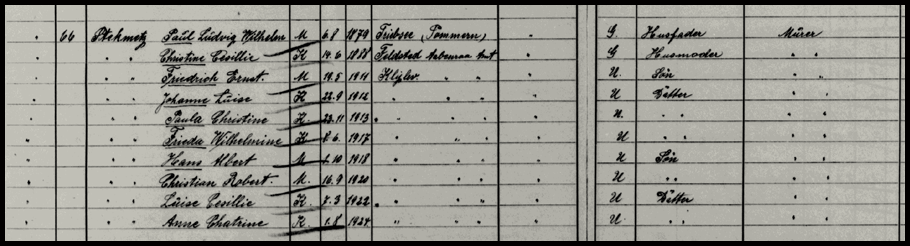 " 66 Stehmetz Paul Ludvig Wilhelm M 6.8 1879 Triebsee (Pommern) " G. Husfader Murer
" " " Christine Cesillie K 14.6 1888 Feldsted Aabenraa Amt G Husmoder " "
" " " Friedrich Ernst M 19.5 1911 Kliplev " " " U. Søn " "
" " " Johanne Luise K 22.9 1912 " " " " U Datter " "
" " " Paula Christine K. 23.11 1913 " " " " U. " " " "
" " " Frieda Wilhelmine K 8.6 1917 " " " " U " " " "
" " " Hans Albert M 1.10 1918 " " " " U Søn " "
" " " Christian Robert. M. 16.9 1920 " " " " U " " " "
" " " Luise Cesillie K. 7.3 1922 " " " " U Datter " "
" " " Anne Chatrine K. 1.8 1924 " " " " U " " " "